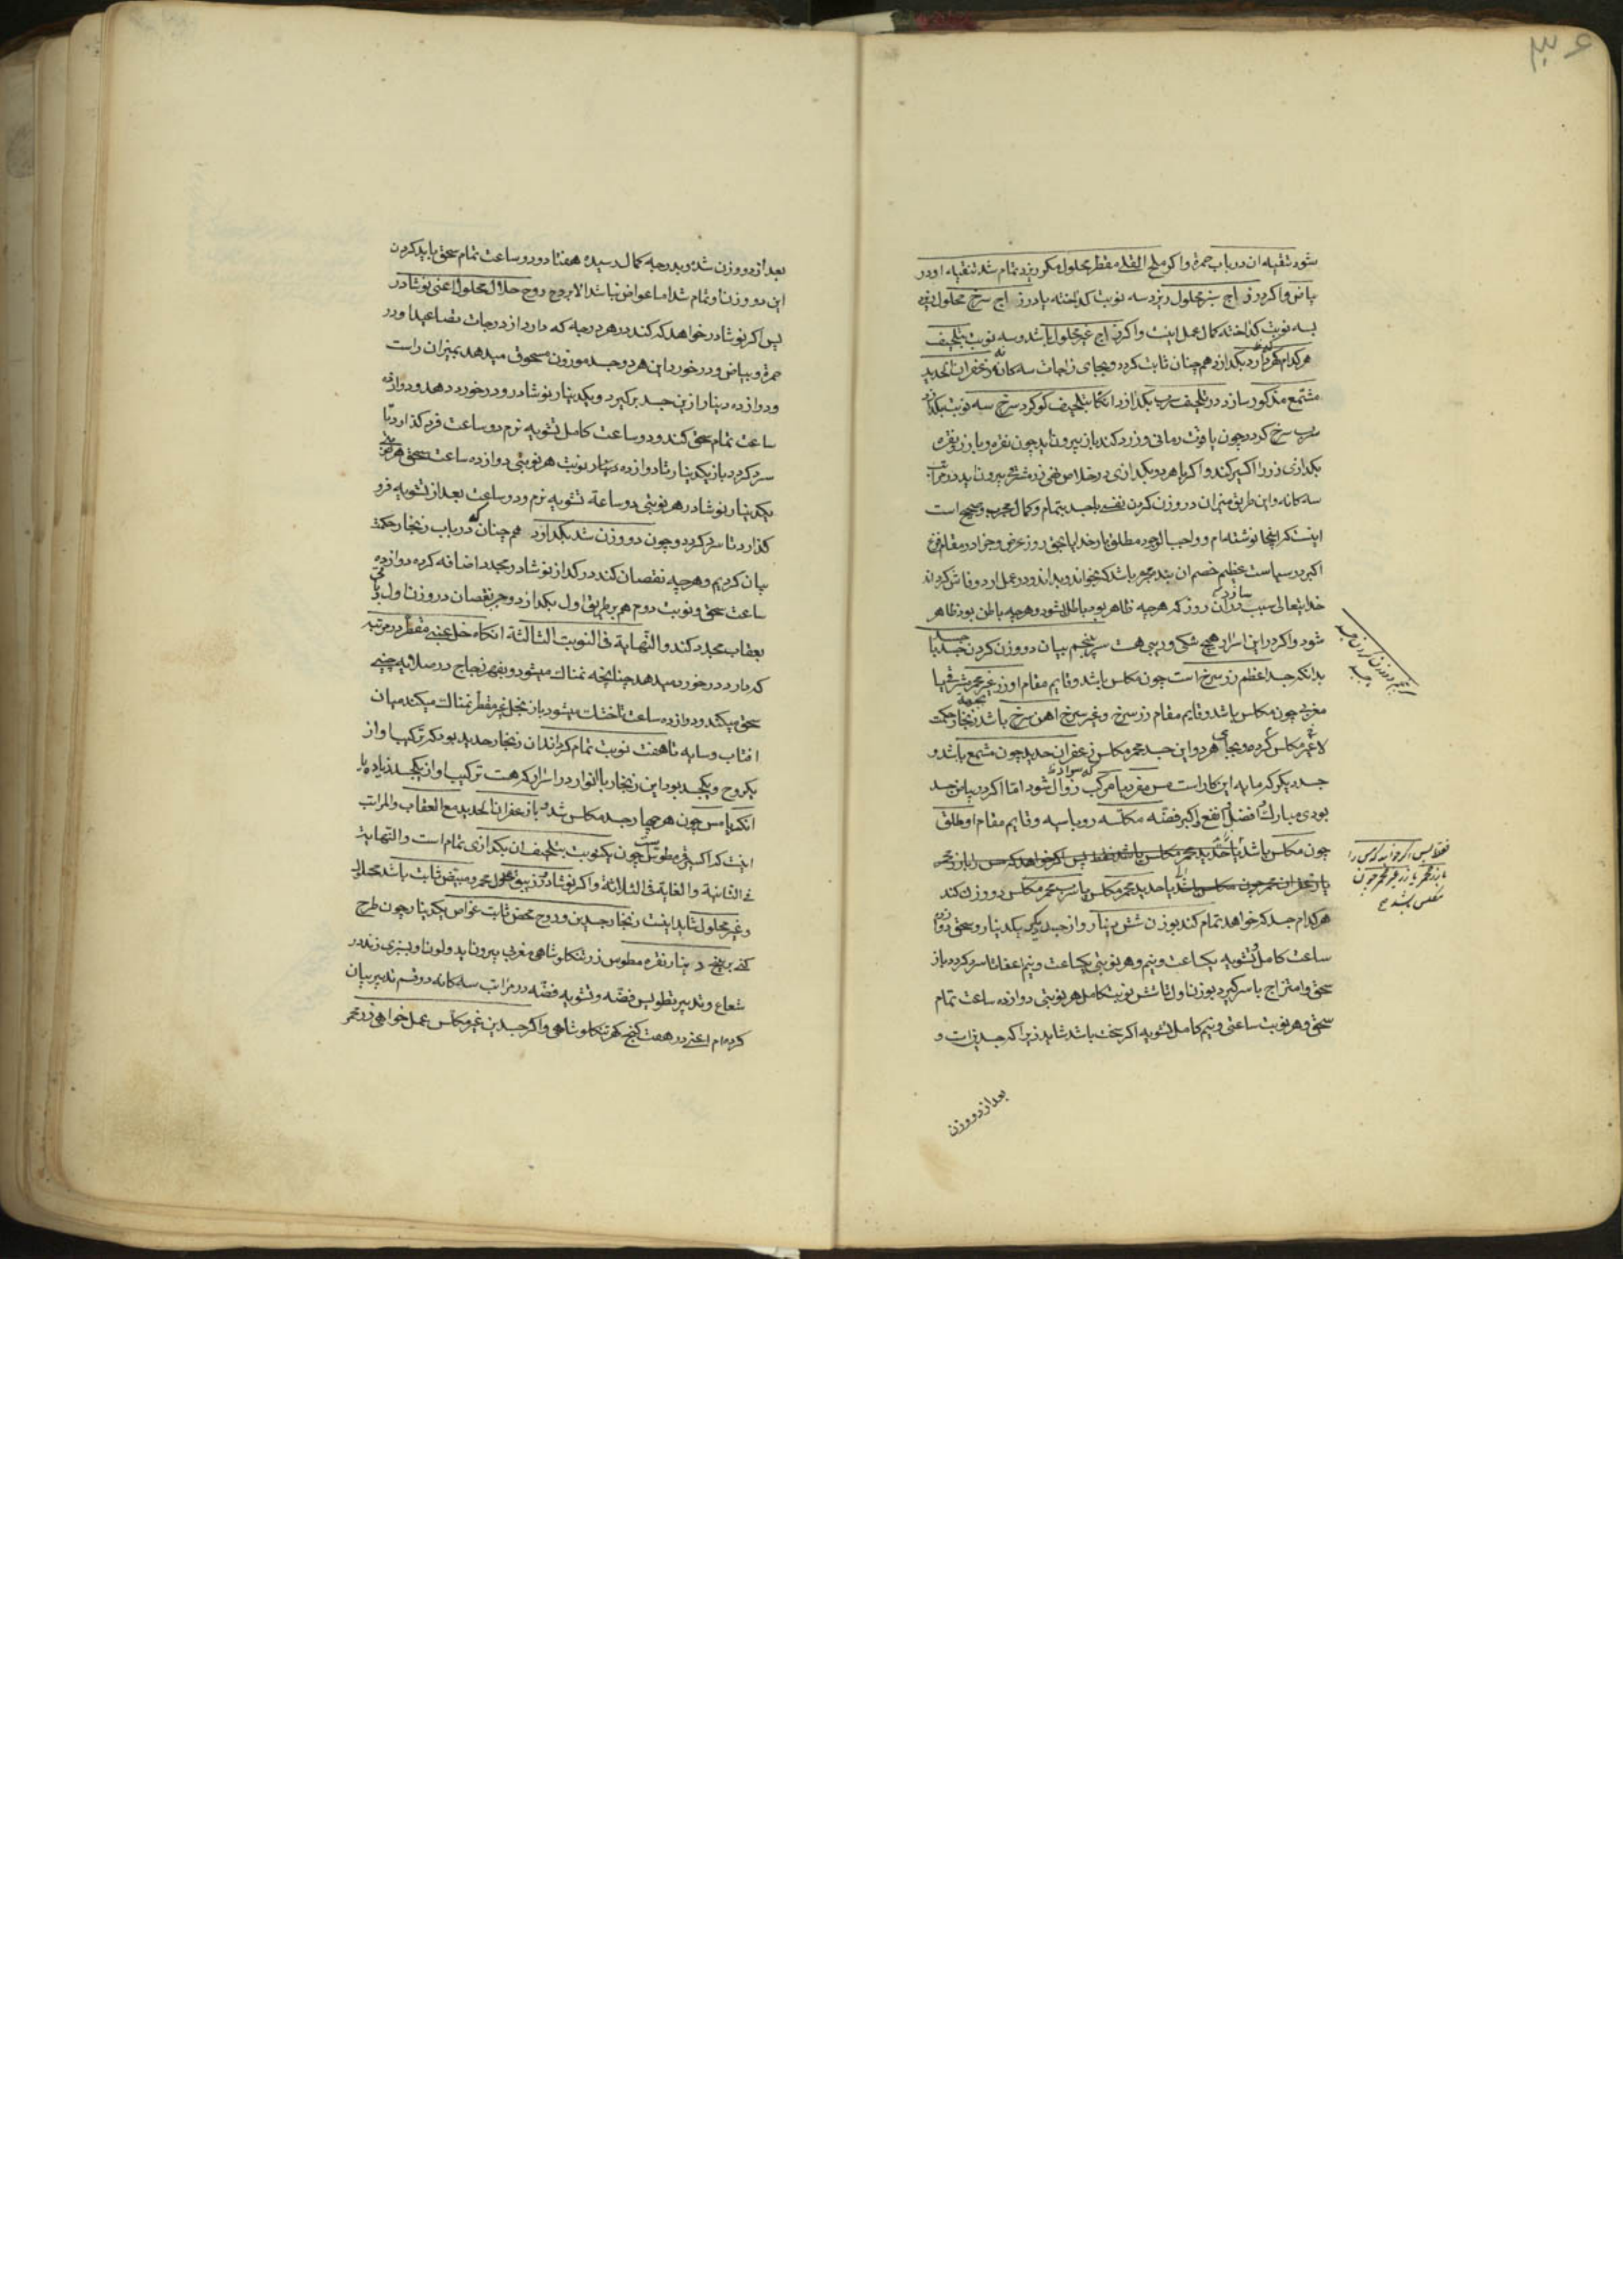 ۳۶
شود تنقیه ان در باب حمرة واکر ملح القلی مقطر محلول مکور یزد تمام شد تنقیه او در
بیاض واکر در زاج سبز محلول ریزد سه نوبت کداخته یا در زاج سرخ محلول
بسه نوبت کداخته کمال عمل اینست واکر زاج غیر محلول باشد و سه نوبت بتلجیف
هرکدام که دارد بکدازد همچنان ثابت کردد و بجای زاجات سه کانه زعفران الحدید
مشمع مذکور سازد در تلجیف سرب بکدازد انکاه بتلجیف کوکرد سرخ سه نوبت بکدازد
سرب سرخ کردد چون یاقوت رمانی و زرد کند باز بیرون اید چون نقره و با زر و نقره
بکدازی زر را اکسیر کند واکر با هر دو بکدازی در خلاص نقی زر مشرقی بیرون اید در مراتب
سه کانه و این طریق میزان در وزن کردن نفس با جسد بتمام و کمال مجرب و صحیح است
اینست که اینجا نوشته‌ام و واجب الوجود مطلق بار خدایا بحق روز عرض و جزا در مقام فزع
اکبر در سیاست عظیم خصم ان بنده مجرم باشد که بخواند و بداند و در عمل ارد و فاش کرداند
خدایتعالی سبب سازد در ان روز که هرچه ظاهر بود باطل شود و هرچه باطن بود ظاهر
شود واکر در این اسرار هیچ شکی و ریبی هست سر پنجم بیان دو وزن کردن جسد با
بدانکه جسد اعظم زر سرخ است چون مکلس باشد و قایم مقام او زر غیر محمر مشرقی یا
مغربی چون مکلس باشد و قایم مقام زر سرخ و غیر سرخ اهن سرخ باشد زنجار حکمت
لا غیر مکلس کرده و بجای هر دو این جسد محمر مکلس زعفران حدید چون مشمع باشد و
جسد دیکر که مایه این کار است مس مفرد یا مرکب که سواد زوال شود اما اکر در بیاض جسد
بودی مبارک افضل انفع اکبر فضه مکلسه روباسیه و قایم مقام او طلق
چون مکلس باشد یا حدید محمر مکلس باشد فقط پس اکر خواهد که مس را با زر محمر
یا زعفران محمر چون مکلس باشد یا حدید محمر مکلس یا سرب محمر مکلس دو وزن کند
هرکدام جسد که خواهد تمام کند بوزن شش دینار و از جسد دیکر یکدینار و سحق دوازده
ساعت کامل و تشویه یکساعت و نیم و هر نوبتی یکساعت و نیم اعفا تا سرد کردد باز
سحق و امتزاج با سر کیرد بوزن اول تا شش نوبت کامل هر نوبتی دوازده ساعت تمام
سحق و هر نوبت ساعتی و نیم کامل تشویه اکر سخت باشد شاید زیرا که جسد بذات و
بعد از دو وزن
سر پنجم در وزن کردن جسد
بجسد
فقط پس اکر خواهد که مس را
با زر محمر یا زر غیر محمر چون
مکلس باشد صح
بعد از دو وزن شده و بدرجه کمال رسیده هفتاد و دو ساعت تمام سحق باید کردن
این دو وزن او تمام شد اما غواص نباشد الا بروح روح حلال محلول اعنی نوشادر
پس اکر نوشادر خواهد که کند در هر درجه که دارد از درجات تصاعید او در
حمرة و بیاض و در خورد این هر دو جسد موزون مسحوق میدهد بمیزان راست
و دوازده دینار از ین جسد برکیرد و یکدینار نوشادر و در خورد دهد و دوازده
ساعت تمام سحق کند و دو ساعت کامل تشویه نرم دو ساعت فرو کذارد تا
سرد کردد باز یکدینار تا دوازده دینار نوبت هر نوبتی دوازده ساعت سحق
یکدینار نوشادر هر نوبتی دو ساعة تشویه نرم و دو ساعت بعد از تشویه فرو
کذارد تا سرد کردد و چون دو وزن شد بکدازد همچنان که در باب زنجار حکمت
بیان کردیم و هرچه نقصان کند در کداز نوشادر مجدد اضافه کرده دوازده
ساعت سحق و نوبت دوم هم بر طریق اول بکدازد و جبر نقصان در وزن اول
بعقاب مجدد کند و النهایة فی النوبت الثالثة انکاه خل عنبی مقطر در مرتبه
که دارد در خورد میدهد چنانچه نمناک میشود و بفهر زجاج در صلایه چینی
سحق میکند و دوازده ساعت تا خشک میشود باز بخل غیر مقطر نمناک میکند میان
افتاب و سایه تا هفت نوبت تمام کرداند ان زنجار حدید بود که ترکیب او از
یکروح و یکجسد بود این زنجار با انوار در اسرار که هست ترکیب او از یکجسد زیاده یا
انکه با مس چون هر چهار جسد مکلس شد و باز عفران الحدید مع العقاب والمراتب
اینست که اکسیر فی مطوس چون یکنوبت بتلجیف ان بکدازی تمام است و النهایة
فی الثانیة و الغایة فی الثلاثة واکر نوشادر و زیبق محلول محمر و مبیض ثابت باشد محلول
و غیر محلول شاید اینست زنجار جسدین و روح محض ثابت غواص یکدینار چون طرح
کنی بر پنج دینار نقره مطوس زر تنکلوشاهی مغربی بیرون اید و لون او بسبزی زند در
شعاع و تدبیر تطویس فضه و تشویه فضه در مراتب سه کانه دو قسم تدبیر بیان
کرده‌ام اعنی در هفت کنج کهر تنکلوشاهی واکر جسدین غیر مکلس عمل خواهی زر محمر